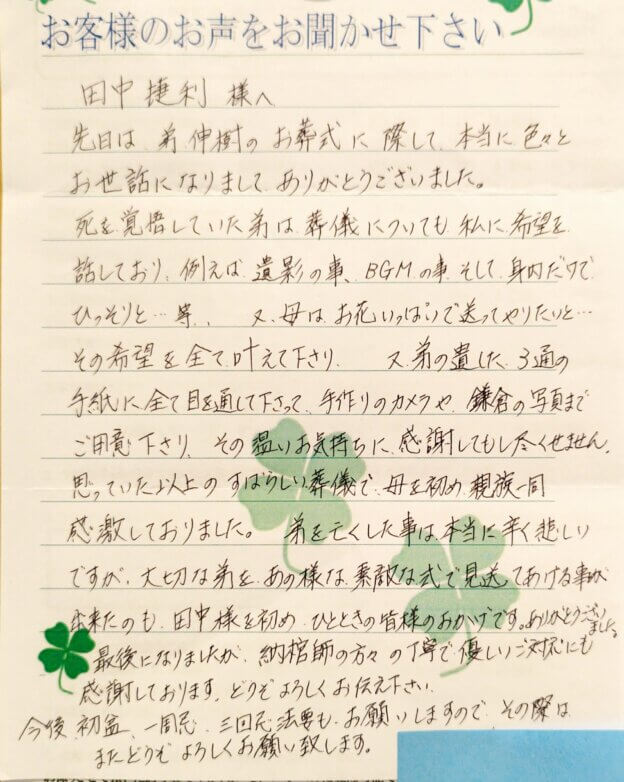 お客様のお声をお聞かせ下さい
田中捷利様へ
先日は弟伸樹のお葬式に際して、本当に色々と
お世話になりまして、ありがとうございました。
死を覚悟していた弟は葬儀についても私に希望を
話しており、例えば遺影の事、BGMの事、そして身内だけで
ひっそりと…等、又、母はお花いっぱいで送ってやりたいと…
その希望を全て叶えて下さり、又、弟の遺した3通の
手紙に、全て目を通して下さって、手作りのカメラや、鎌倉の写真まで
ご用意下さり、その温いお気持ちに、感謝してもし尽くせません。
思っていた以上のすばらしい葬儀で、母を初め、親族一同
感激しておりました。弟を亡くした事は、本当に辛く悲しい
ですが、大切な弟を、あの様な、素敵な式で見送ってあげる事が
出来たのも、田中様を初め、ひとときの皆様のおかげです。ありがとうござい
ました。
最後になりましたが、納棺師の方々の丁寧で優しいご対応にも
感謝しております。どうぞよろしくお伝え下さい。
今後、初盆、一周忌、三回忌法要も、お願いしますので、その際は
またどうぞよろしくお願い致します。